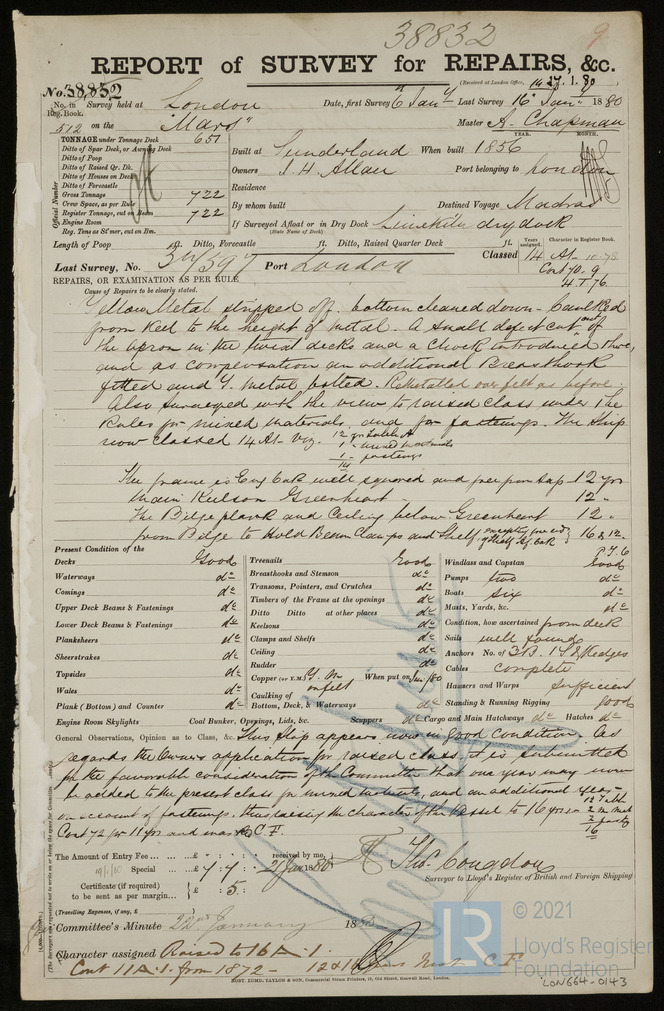 38832
9
REPORT of SURVEY for REPAIRS, &c.
(Received at London Office, 27.1.80
No. 38832
No. in Reg. Book. Survey held at London Date, first Survey 6 Jany Last Survey 16 Jany 1880
512 on the "Mars" Master A. Chapman
TONNAGE under Tonnage Deck 651
Ditto of Spar Deck, or Awning Deck
Ditto of Poop
Ditto of Raised Qr. Dk.
Ditto of Houses on Deck
Ditto of Forecastle
Gross Tonnage 722
Crew Space, as per Rule
Register Tonnage, cut on Beam 722
Engine Room
Reg. Tons as St'mer, cut on Bm.
Official Number
YEAR. MONTH.
Built at Sunderland When built 1856
Owners J. H. Allan Port belonging to London
Residence
By whom built Destined Voyage Madras
If Surveyed Afloat or in Dry Dock Limekiln dry dock
(State Name of Dock)
Length of Poop ft. Ditto, Forecastle ft. Ditto, Raised Quarter Deck ft.
Years assigned. Character in Register Book.
Classed 14 A1 10.78
Cont 70. 9
4. T 76.
Last Survey, No. 397 Port London
REPAIRS, OR EXAMINATION AS PER RULE
Cause of Repairs to be clearly stated.
Yellow Metal stripped off. bottom cleaned down. Caulked
from Keel to the height of metal. A small defect cut out of
the apron in the twixt decks and a chock introduced there,
and as compensation an additional Breasthook
fitted and Y. metal bolted. Remetalled over felt as before.
Also surveyed with the view to raised class under the
Rules for mixed materials, and for fastenings. The Ship
now classed 14 A1. viz. 12 for table A
1 " mixed materials
1 " fastenings
14
The frame is Eng Oak well squared and free from sap - 12 yrs
Main Keelson Greenheart - 12 "
The Bilge plank and Ceiling below Greenheart 12 "
from Bilge to Hold Beam Clamps and Shelf 16 & 12.
P.T.O
Present Condition of the
Decks Good
Waterways do
Comings do
Upper Deck Beams & Fastenings do
Lower Deck Beams & Fastenings do
Planksheers do
Sheerstrakes do
Topsides do
Wales do
Plank (Bottom) and Counter do
Engine Room Skylights
Treenails Good
Breasthooks and Stemson do
Transoms, Pointers, and Crutches do
Timbers of the Frame at the openings do
Ditto Ditto at other places do
Keelsons do
Clamps and Shelfs do
Ceiling do
Rudder do
Copper (or Y.M.) Y. M on felt When put on Jan/80
Caulking of Bottom, Deck, & Waterways do
Coal Bunker, Openings, Lids, &c. Scuppers do Cargo and Main Hatchways do Hatches do
Windlass and Capstan Good
Pumps two do
Boats six do
Masts, Yards, &c. do
Condition, how ascertained from deck
Sails well found
Anchors No. of 3 B. 1 S. & 2 Kedges
Cables complete
Hawsers and Warps sufficient
Standing & Running Rigging good
General Observations, Opinion as to Class, &c. This Ship appears now in good condition. As
regards the Owners application for raised class, it is submitted
for the favorable consideration of the Committee that one year may now
be added to the present class for mixed materials, and an additional year
on account of fastenings, thus raising the character of the Vessel to 16 years
Cont 72 for 11 yrs and C. F.
12 Table
2 mx mat
2 fastg
16
The Amount of Entry Fee ... ... £ : : received by me,
Special ... ... £ 4 4 : 21 Jan 1880
Certificate (if required) to be sent as per margin... £ : 5 :
(Travelling Expenses, if any, £ )
Thos Congdon
Surveyor to Lloyd's Register of British and Foreign Shipping
Committee's Minute 22nd January 1880
Character assigned Raised to 16 A.1.
Cont 11 A.1. from 1872 - C.F.
ROBT. EDMD. TAYLOR & SON, Commercial Steam Printers, 19, Old Street, Goswell Road, London.
LR
© 2021
Lloyd's Register
Foundation
LON664-0143